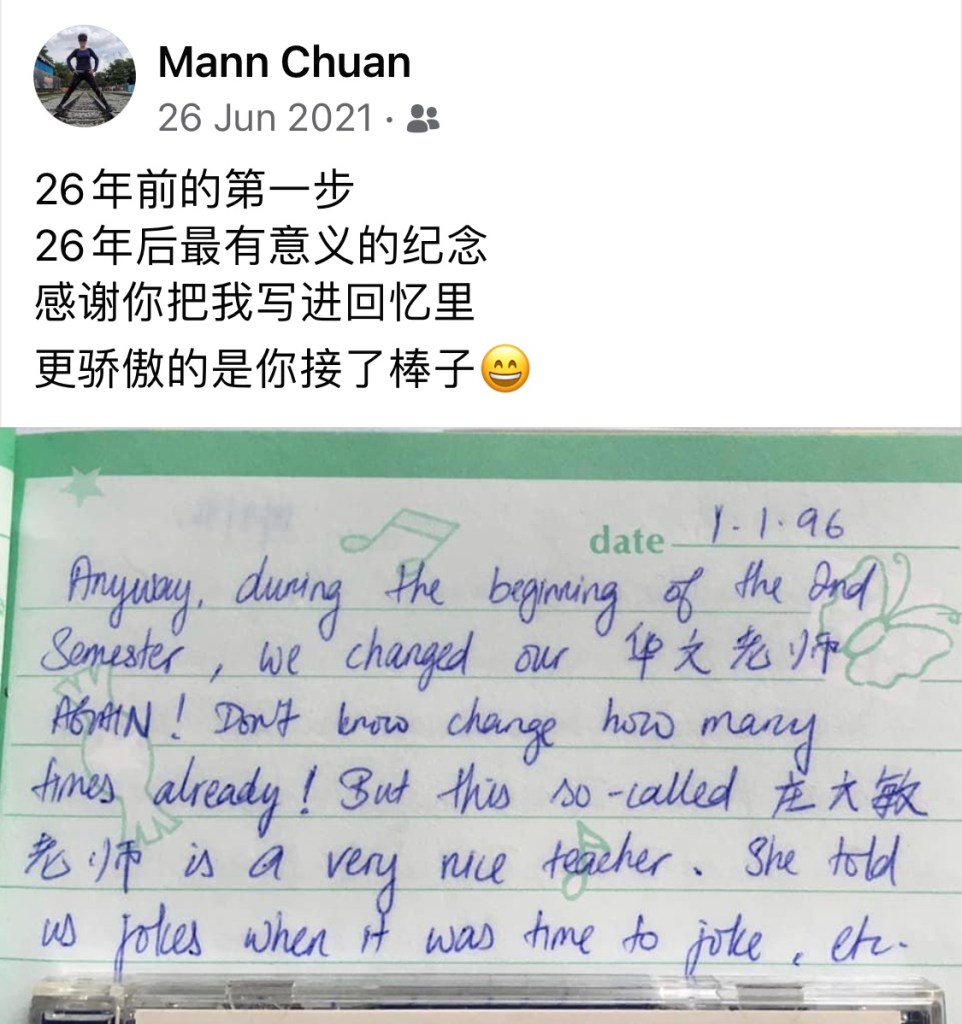 Mann Chuan
26 Jun 2021 ·
26年前的第一步
26年后最有意义的纪念
感谢你把我写进回忆里
更骄傲的是你接了棒子😄
date 1.1.96
Anyway, during the beginning of the 2nd
Semester, we changed our 华文老师
AGAIN! Don't know change how many
times already! But this so-called 庄大敏
老师 is a very nice teacher. She told
us jokes when it was time to joke, etc.